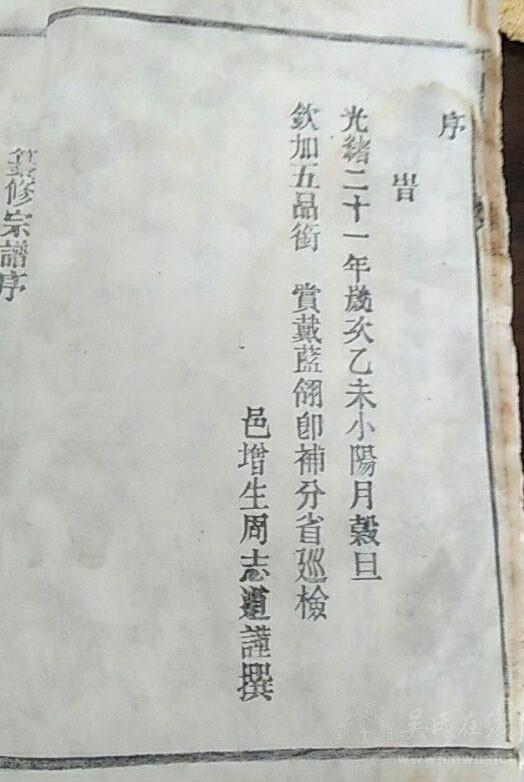 序
旹
光緒二十一年歲次乙未小陽月穀旦
欽加五品銜 賞戴藍翎卽補分省廵檢
邑增生周志謹撰
纂修宗譜序
吴氏在线